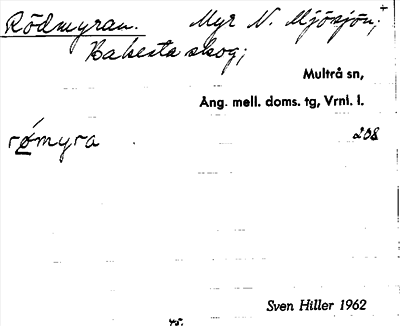 Rödmyran. Myr N. Mjösjön;
Bahesta skog;
Multrå sn,
Ång. mell. doms. tg, Vrnl. l.
rømyra 208
Sven Hiller 1962